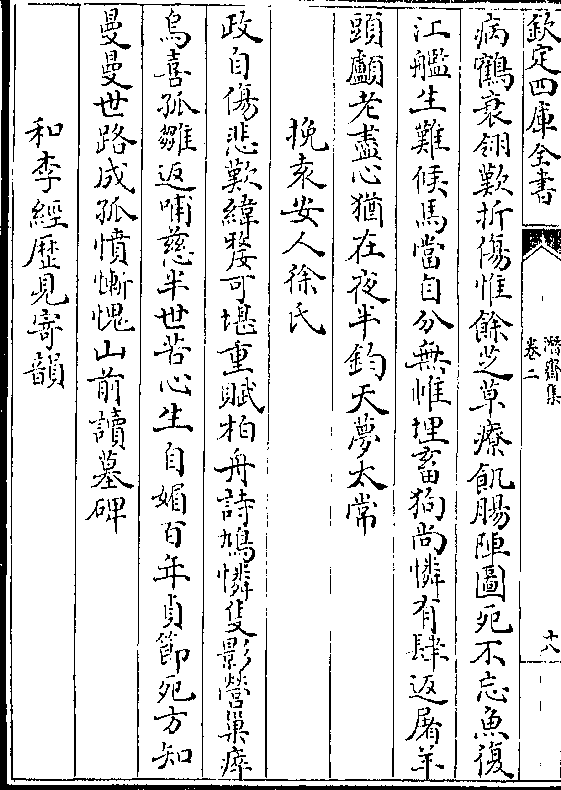 欽定四庫全書
潛齋集
卷二
十八
病鶴衰翎歎折傷惟餘芝草療飢腸陣圖死不忘魚復
江艦生難候馬當自分無惟埋畜狗尚憐有肆返屠羊
頭顱老盡心猶在夜半鈞天夢太常
挽袁安人徐氏
政自傷悲歎緯嫠可堪重賦柏舟詩鳩憐隻影營巢瘁
烏喜孤雛返哺慈半世苦心生自媚百年貞節死方知
曼曼世路成孤憤慚愧山前讀墓碑
和李經歷見寄韻